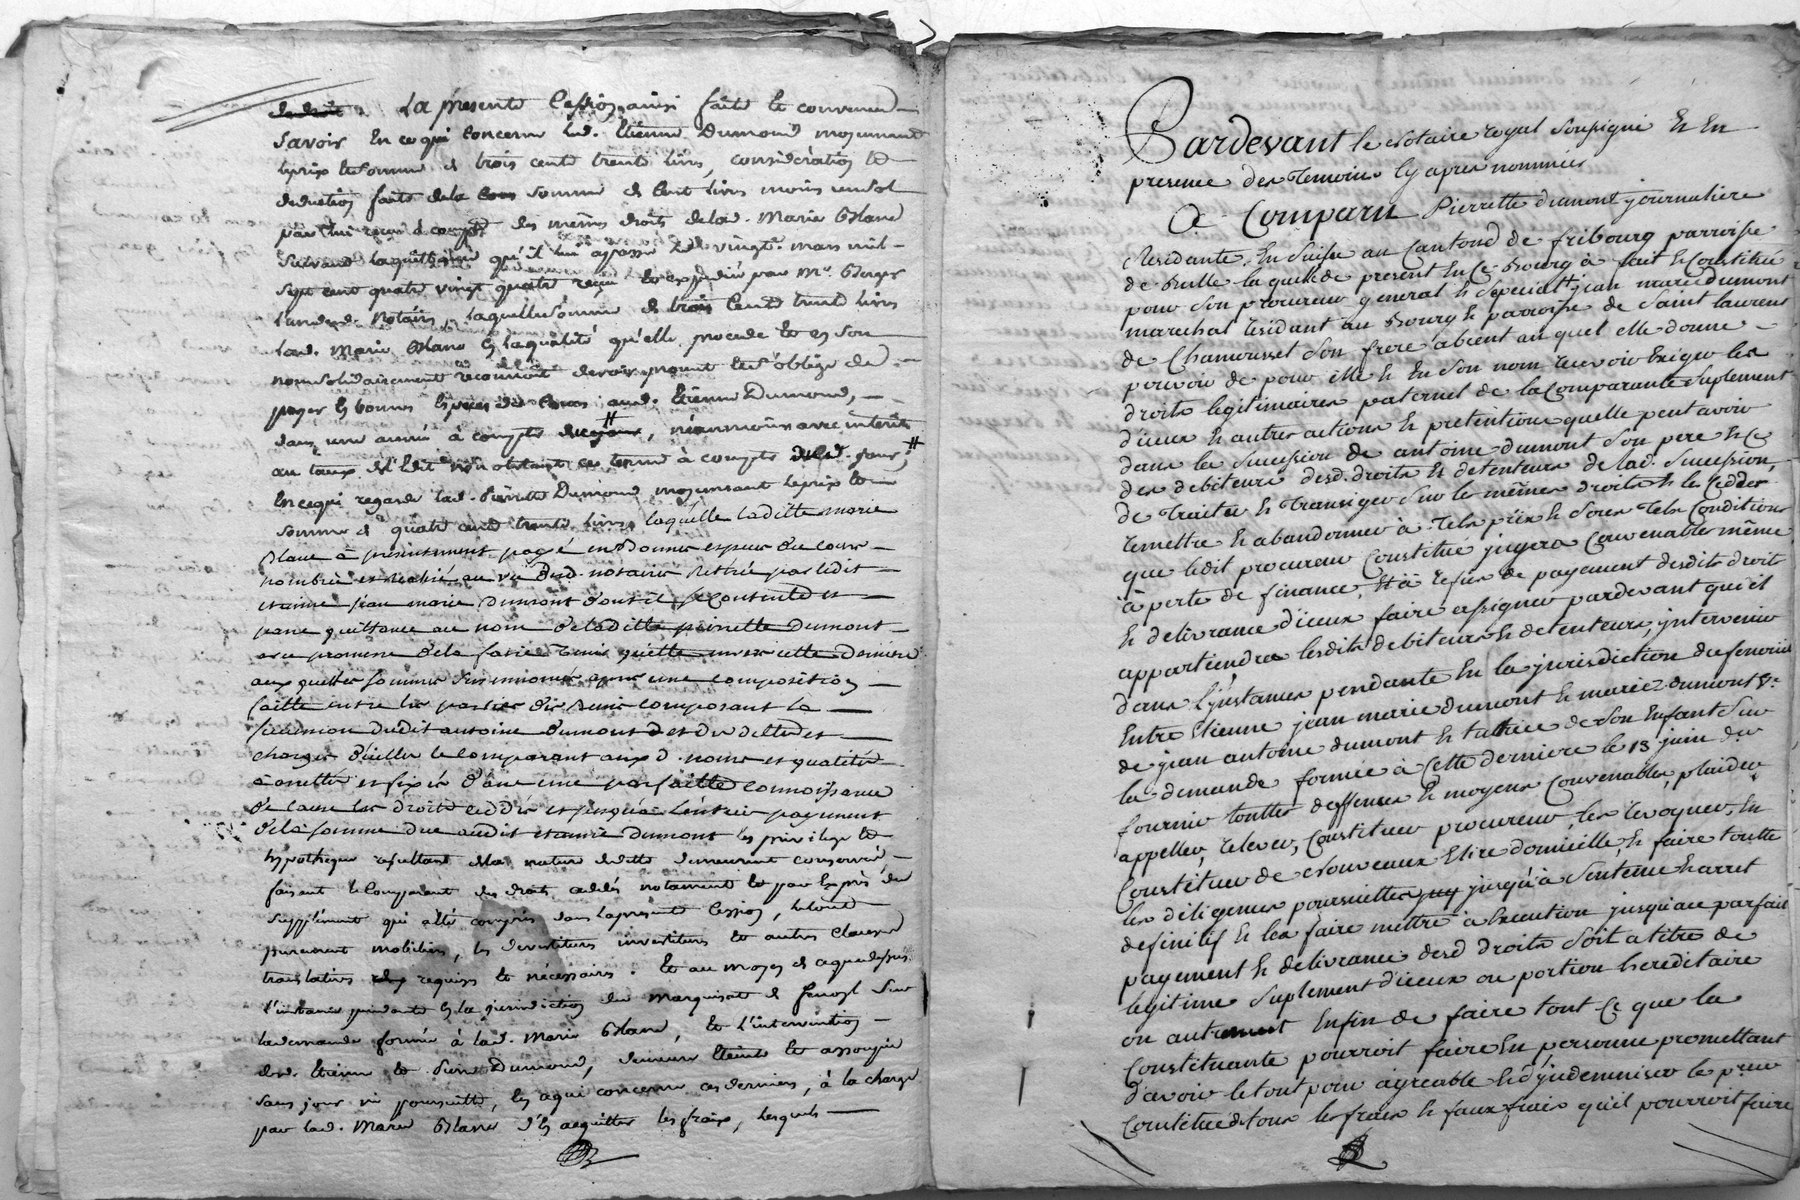 La presente Cession ainsi faitte et convenue
Savoir En ce qui Concerne led. Etienne Dumond moyennant
le prix et Somme de trois cents trente livres, considération et
deduction faite de la Somme de Cent livres moins un sol
par lui reçue à compte des mêmes droits de lad. Marie Blanc
Suivant la quittance qu'il lui a passée Le vingt mars mil
Sept cent quatre vingt quatre reçue et expediée par Me Berger
l'un desd. Notaires, laquelle Somme de trois Cents trente livres
lad. Marie Blanc En la qualité qu'elle procede et en son
nom solidairement reconnoit devoir, promet et s'oblige de
payer En bonnes Especes de Cours aud. Etienne Dumond,
dans une année à compter de ce jour, néanmoins avec intérêts
au taux de l'Edit non obstant ce terme à compter dud. jour,
En ce qui regarde lad. Pierrette Dumond moyennant le prix et
somme de quatre cents trente livres laquelle laditte marie
Blanc à présentement payé en Bonnes especes de Cours
nombrée et realisé au vu desd. notaires Retirée par ledit
etienne jean marie Dumont dont il se contente et
passe quittance au nom de laditte pierrette Dumont
avec promesse de la faire tenir quitte envers cette Derniere
aux quelles sommes susmentionnées apres une composition
faitte entre les parties des Biens composant la
succession dudit antoine Dumont et des dettes et
charges d'icelle le comparant aux d. noms et qualités
à cedé et fixés d'une une parfaitte connoissance
de cause les droits ceddés et jusqu'a l'entier payement
de la somme due audit etienne Dumont les privilege et
hypotheque resultant de la nature de dette demeurent conservés
faisant le Comparant des droits cedés notament et par Exprès du
Supplément qui a été compris dans la présente Cession, le tout
purement mobilier, les devestitures investitures et autres Clauses
translatives requises et nécessaires. Et au moyen de ce que dessus
l'instance pendante En la jurisdiction du Marquisat de Senozl Sur
la demande formée à lad. Marie Blanc, et l'intervention
desd. Etienne et Pierre Dumond, demeure Eteinte et assoupie
sans jour ni poursuitte, En ce qui concerne ces derniers, à la charge
par lad. Marie Blanc d'En acquitter les fraix, lesquels
Pardevant le Notaire royal Soussigné Et En
presence des Temoins Cy apres nommés
A Comparu Pierrette dumont journaliere
Residante En Suisse au Cantond de fribourg parroisse
de Bulle laquelle de present En Ce Bourg à fait et Constitué
pour Son procureur general et Special jean marie dumont
marechal residant au Bourg et parroisse de Saint laurent
de Chamousset Son frere absent auquel elle donne
pouvoir de pour elle et En Son nom recevoir Exiger les
droits legitimaires paternel de la Comparante Suplement
d'iceux et autres actions et pretentions quelle peut avoir
dans la Sucession de antoine dumont Son pere et ce
des debiteurs desd. droits et detenteurs de lad. Sucession,
de Traiter et Transiger Sur les mêmes droits et les Cedder
remettre et abandonner à Tels prix et Sous Tels Conditions
que ledit procureur Constitué jugera Convenables même
à perte de finance, Et à refus de payement desdits droit
et delivrance d'iceux faire assigner pardevant qu'il
appartiendra lesdits debiteurs et detenteurs, jntervenir
dans L'jnstance pendante En la jurisdiction de senoriil
Entre Etienne jean marie dumont et mariez dumont Ve
de jean antoine dumont et tuttrice de Son Enfant Sur
la demande formée à Cette derniere le 13 juin dr
fournir touttes deffences et moyens Convenables, plaider
appeller, relever, Constituer procureur, les revoquer, En
Constituer de Nouveaux Elire domicille, et faire toutte
les diligences poursuittes jusqu'à Sentence et arret
definitif et les faire mettre à Execution jusqu'au parfait
payement et delivrance desd droits Soit a titre de
legitime Suplement d'iceux ou portion hereditaire
ou autrement Enfin de faire tout Ce que la
Constituante pourroit faire En personne promettant
d'avoir le tout pour agreable et d'jndemniser le preur
Constitué de tous les frais et faux frais qu'il pourroit faire